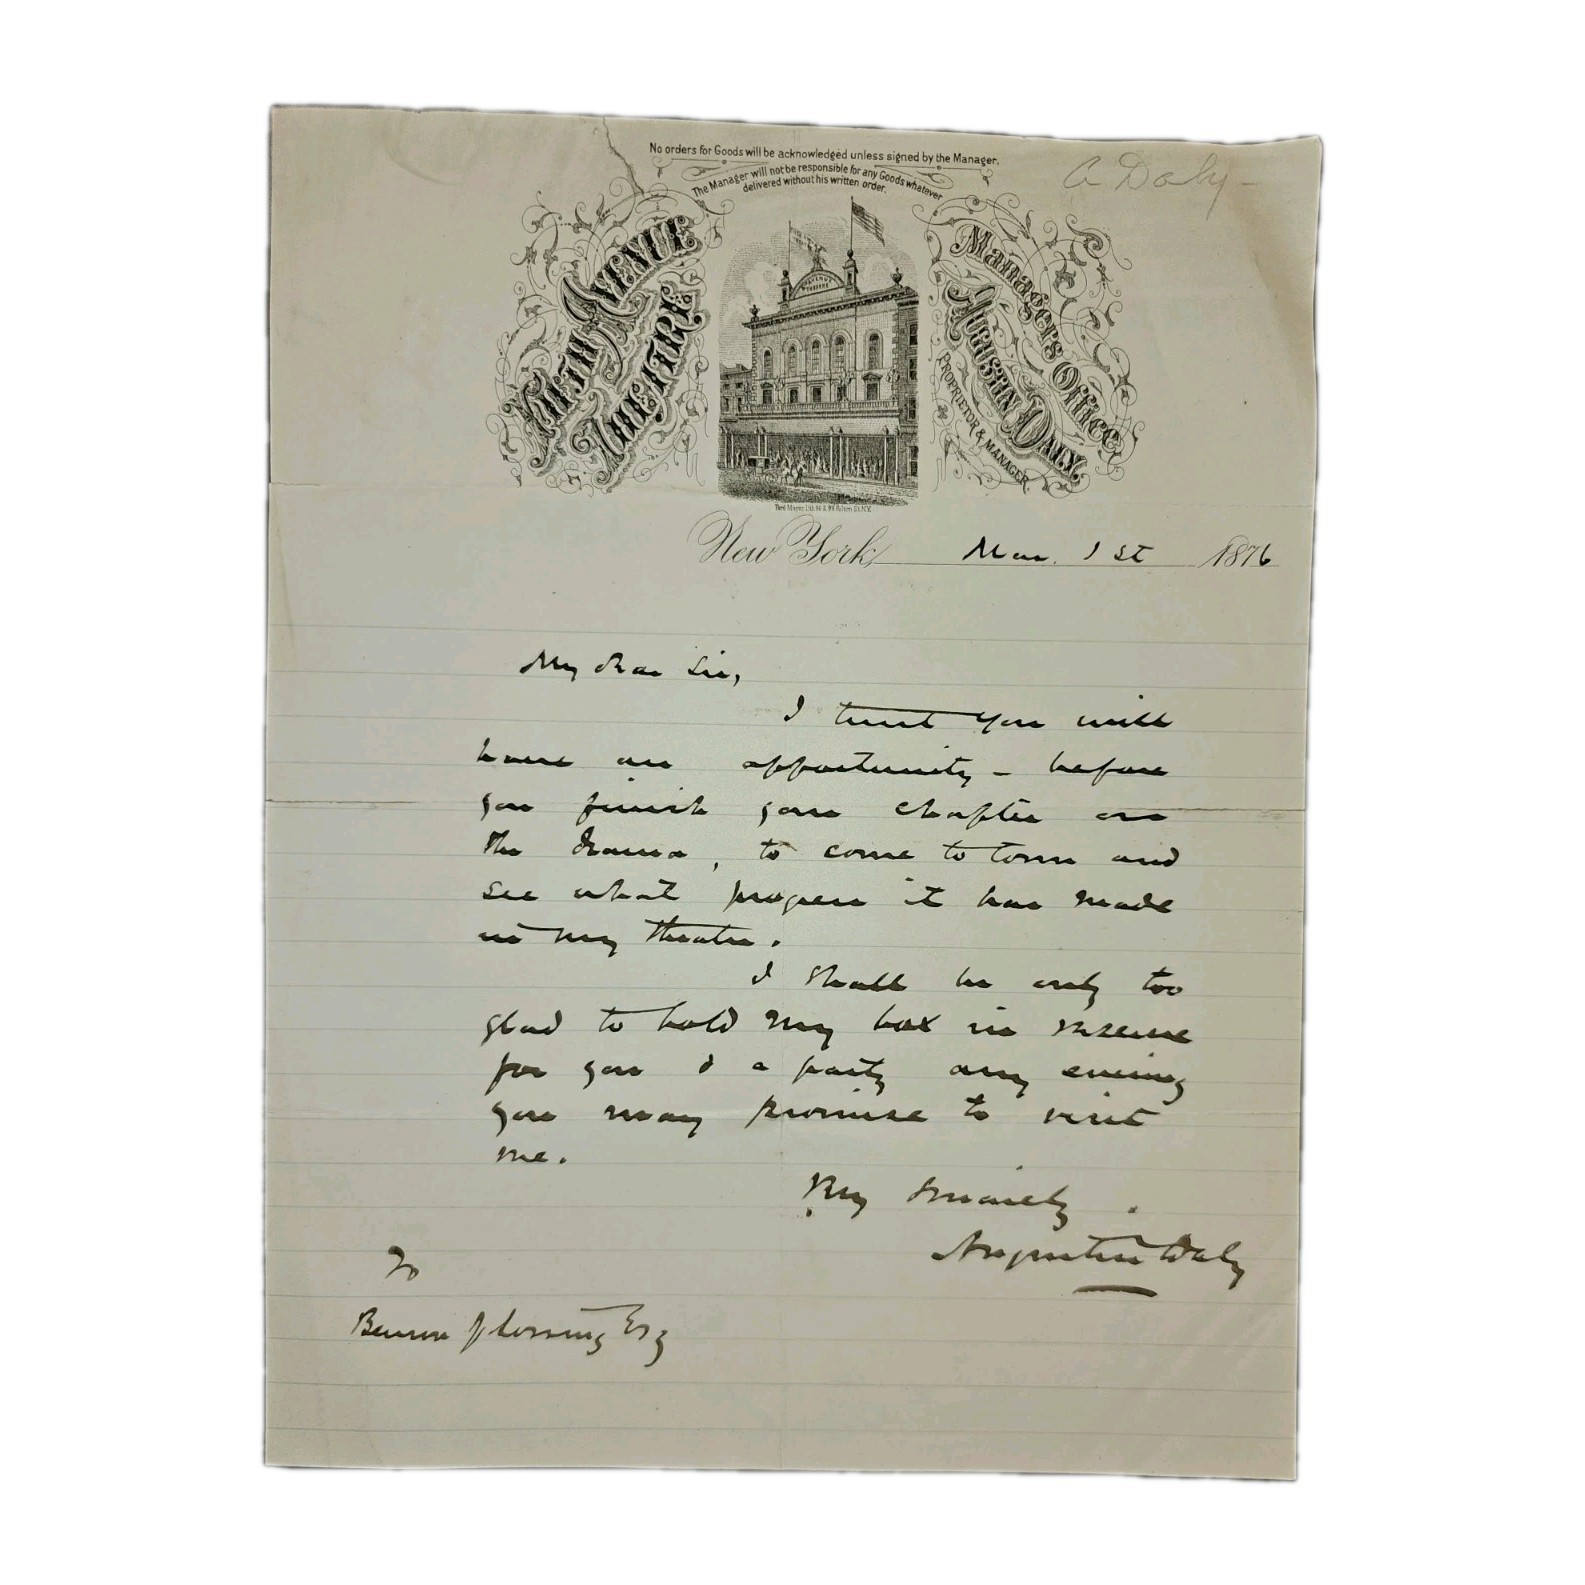 No orders for Goods will be acknowledged unless signed by the Manager.
The Manager will not be responsible for any Goods whatever
delivered without his written order.
A Daly
FIFTH AVENUE
THEATRE
FIFTH AVENUE
THEATRE
Managers Office
AUGUSTIN DALY.
PROPRIETOR & MANAGER.
New York, Mar. 1st 1876
My dear Sir,
I trust you will
have an opportunity - before
you finish your chapter on
the Drama, to come to town and
see what progress it has made
in my theatre.
I shall be only too
glad to hold my box in reserve
for you & a party any evening
you may promise to visit
me.
Very Sincerely
Augustin Daly
To
Benson J Lossing Esq